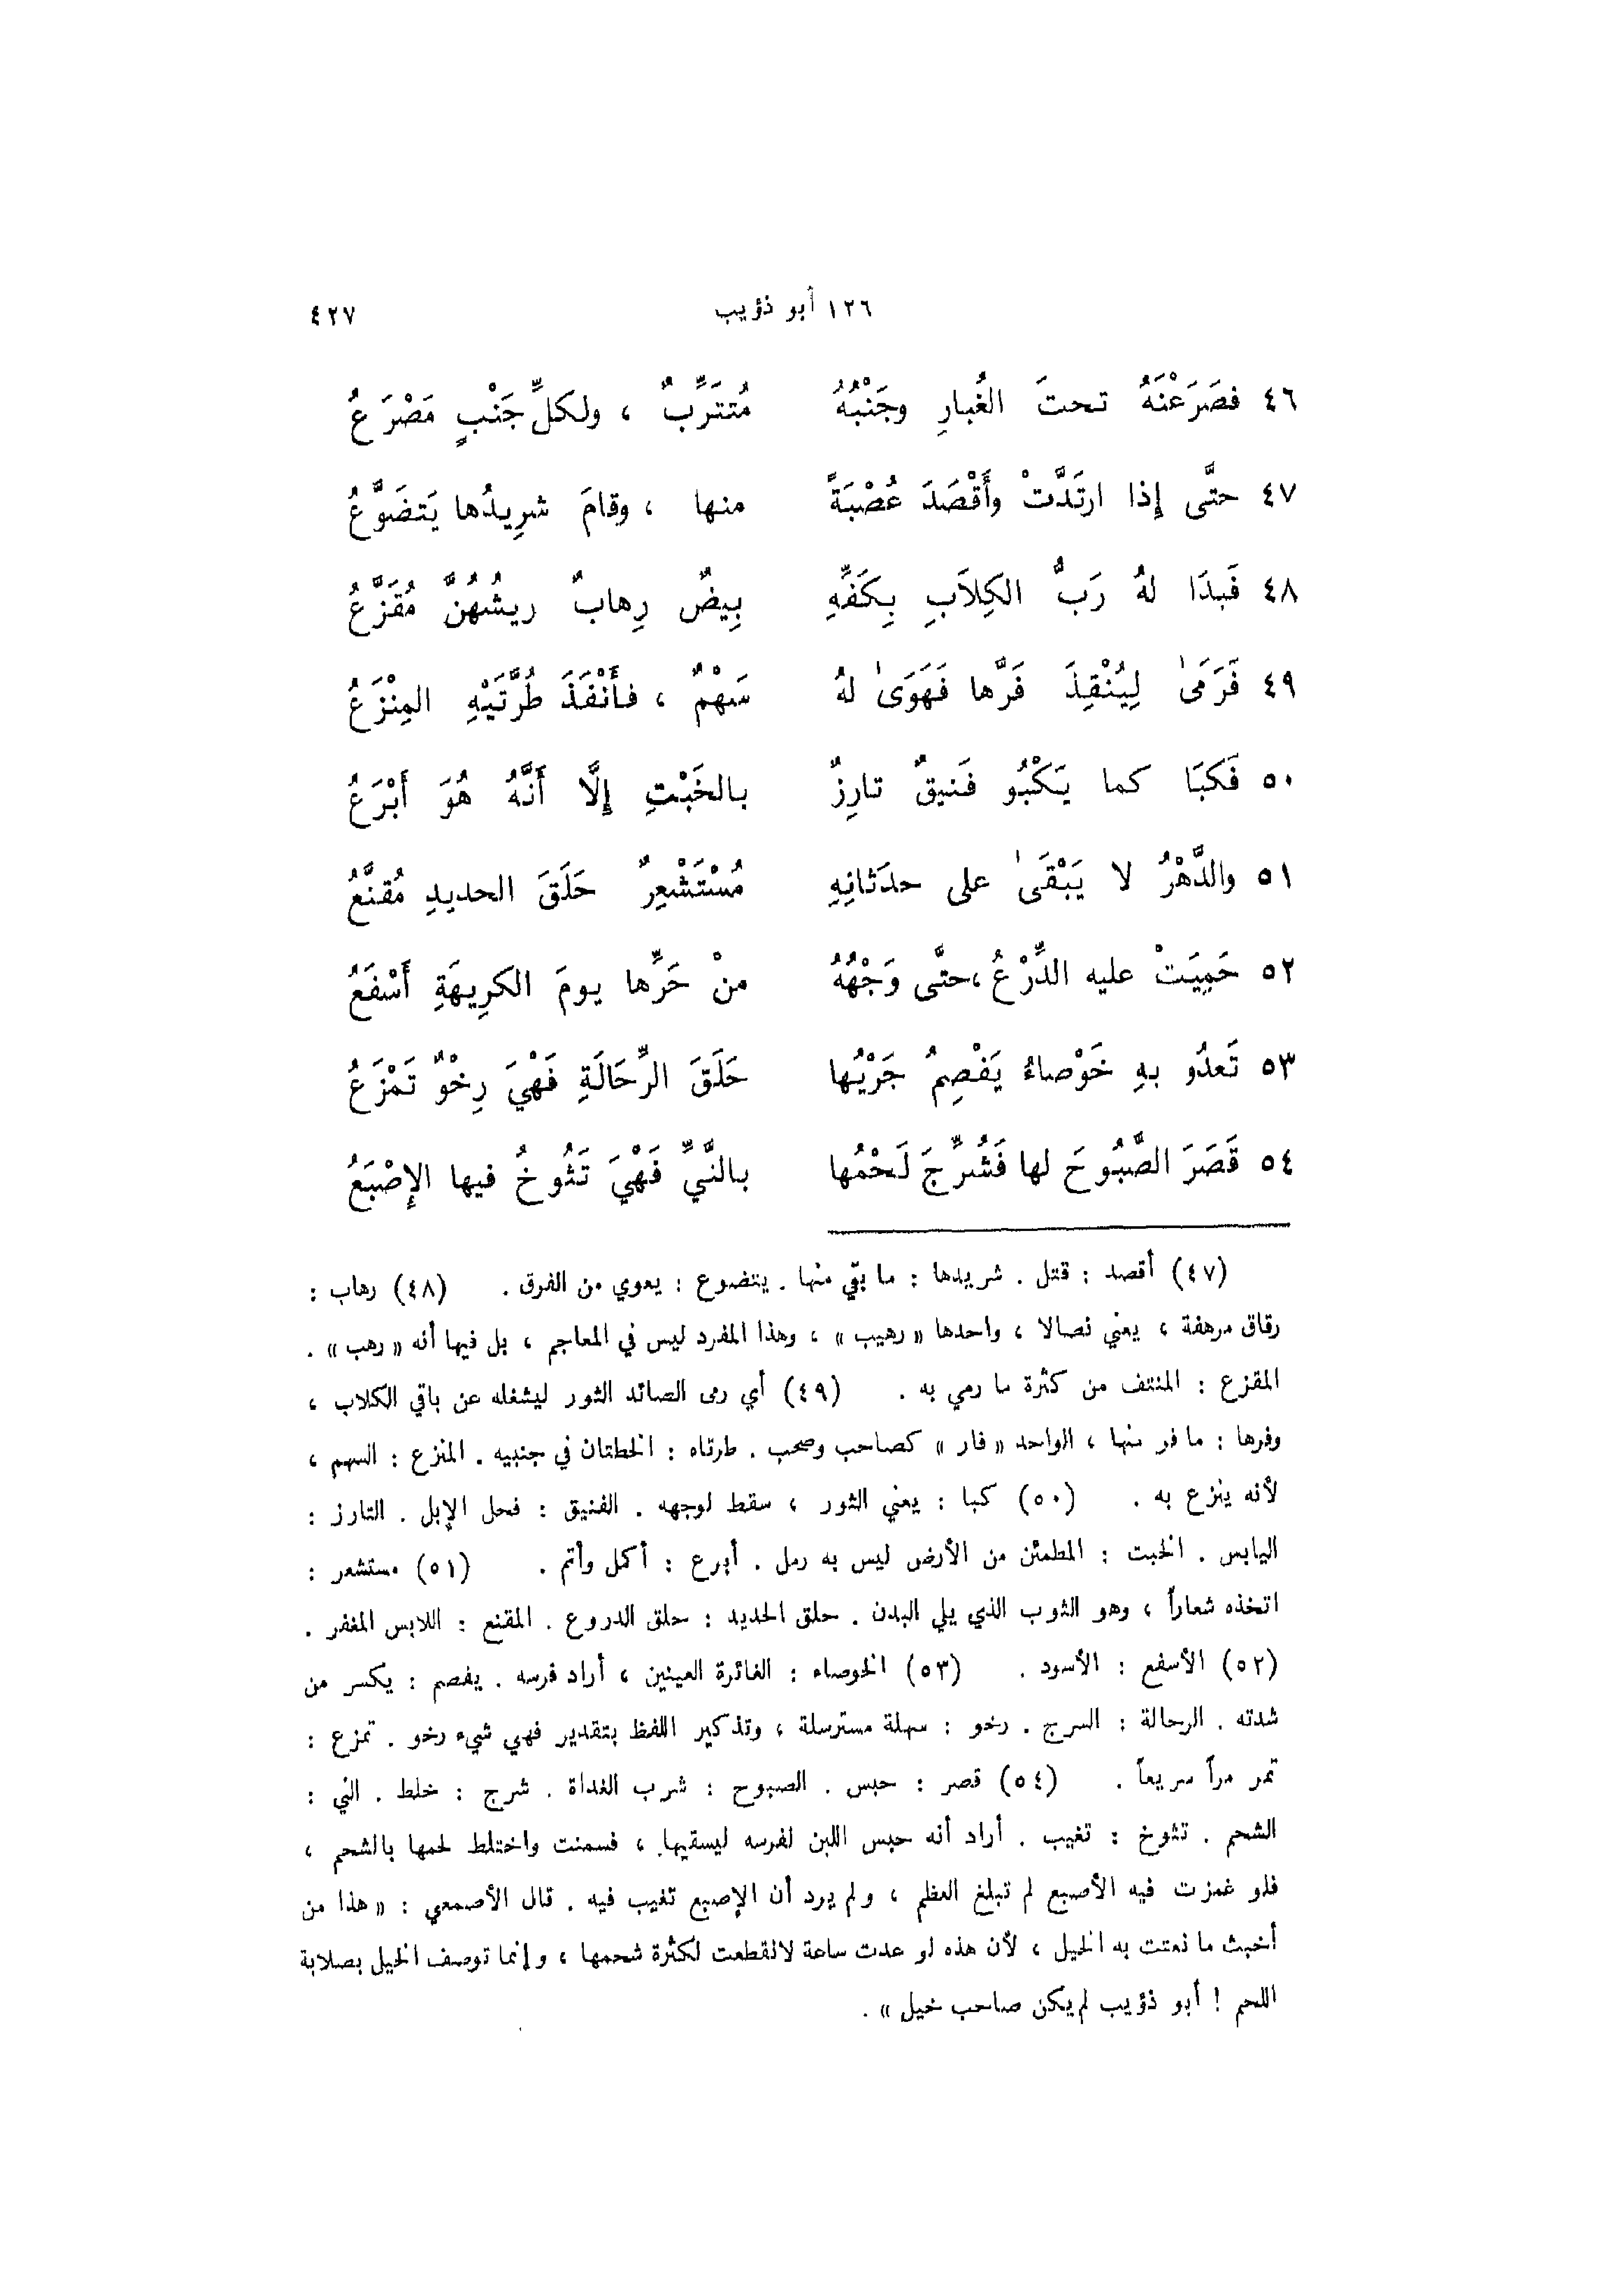 ١٢٦ أبو ذؤيب ٤٢٧
٤٦ فصَرَعْنَهُ تحتَ الغُبارِ وجَنْبُهُ مُتتَرِّبٌ ، ولكلِّ جَنْبٍ مَصْرَعُ
٤٧ حتَّى إِذا ارتَدَّتْ وأَقْصَدَ عُصْبَةً منها ، وقامَ شرِيدُها يَتضَوَّعُ
٤٨ فَبدَا لهُ رَبُّ الكِلاَبِ بِكَفِّهِ بِيضٌ رِهابٌ ريشُهُنَّ مُقَزَّعُ
٤٩ فَرَمَىٰ لِيُنْقِذَ فَرَّها فَهَوَىٰ لهُ سَهْمٌ ، فأَنْفَذَ طُرَّتَيْهِ المِنْزَعُ
٥٠ فَكبَا كما يَكْبُو فَنيقٌ تارِزٌ بالخَبْتِ إِلَّا أَنَّهُ هُوَ أَبْرَعُ
٥١ والدَّهْرُ لا يَبْقَىٰ على حدَثانِهِ مُسْتَشْعِرٌ حَلَقَ الحديدِ مُقنَّعُ
٥٢ حَمِيَتْ عليه الدِّرْعُ ،حتَّى وَجْهُهُ منْ حَرِّها يومَ الكرِيهَةِ أَسْفَعُ
٥٣ تَعدُو بهِ خَوْصاءُ يَفْصِمُ جَرْيُها حَلَقَ الرِّحَالَةِ فَهْيَ رِخْوٌ تَمْزَعُ
٥٤ قَصَرَ الصَّبُوحَ لها فَشُرِّجَ لَحْمُها بالنَّيِّ فَهْيَ تَثُوخُ فيها الإِصْبَعُ
(٤٧) أقصد : قتل . شريدها : ما بقي منها . يتضوع : يعوي من الفرق . (٤٨) رهاب :
رقاق مرهفة ، يعني نصالا ، واحدها « رهيب » ، وهذا المفرد ليس في المعاجم ، بل فيها أنه « رهب » .
المقزع : المنتف من كثرة ما رمي به . (٤٩) أي رمى الصائد الثور ليشغله عن باقي الكلاب ،
وفرها : ما فر منها ، الواحد « فار » كصاحب وصحب . طرتاه : الخطتان في جنبيه . المنزع : السهم ،
لأنه ينزع به . (٥٠) كبا : يعني الثور ، سقط لوجهه . الفنيق : فحل الإبل . التارز :
اليابس . الخبت : المطمئن من الأرض ليس به رمل . أبرع : أكمل وأتم . (٥١) مستشعر :
اتخذه شعاراً ، وهو الثوب الذي يلي البدن . حلق الحديد : حلق الدروع . المقنع : اللابس المغفر .
(٥٢) الأسفع : الأسود . (٥٣) الخوصاء : الغائرة العينين ، أراد فرسه . يفصم : يكسر من
شدته . الرحالة : السرج . رخو : سهلة مسترسلة ، وتذكير اللفظ بتقدير فهي شيء رخو . تمزع :
تمر مراً سريعاً . (٥٤) قصر : حبس . الصبوح : شرب الغداة . شرج : خلط . الني :
الشحم . تثوخ : تغيب . أراد أنه حبس اللبن لفرسه ليسقيها ، فسمنت واختلط لحمها بالشحم ،
فلو غمزت فيه الأصبع لم تبلغ العظم ، ولم يرد أن الإصبع تغيب فيه . قال الأصمعي : « هذا من
أخبث ما نعتت به الخيل ، لأن هذه لو عدت ساعة لانقطعت لكثرة شحمها ، وإنما توصف الخيل بصلابة
اللحم ! أبو ذؤيب لم يكن صاحب خيل » .